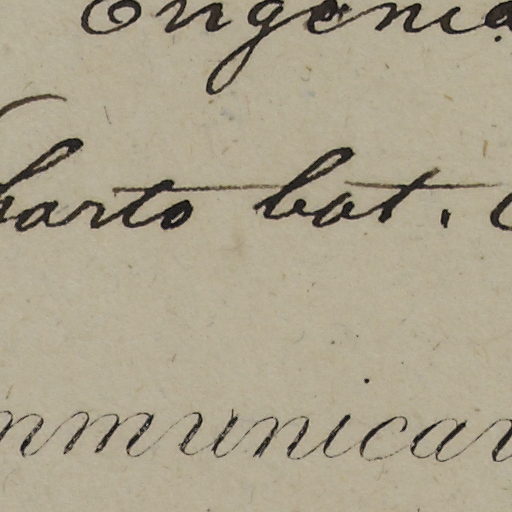 Engenia
barto bat. 
mmunicar